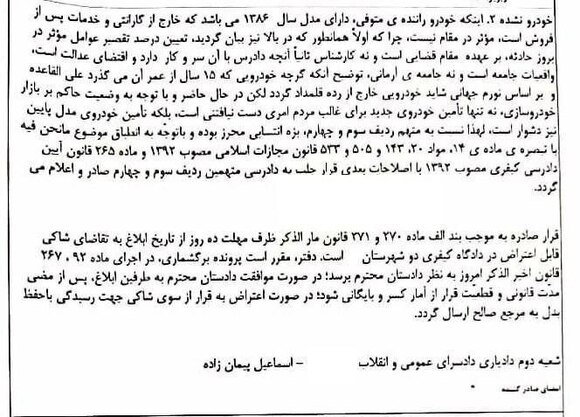 خودرو نشده ۲. اینکه خودرو راننده ی متوفی، دارای مدل سال ۱۳۸۶ می باشد که خارج از گارانتی و خدمات پس از
فروش است، مؤثر در مقام نیست، چرا که اولاً همانطور که در بالا نیز بیان گردید، تعیین درصد تقصیر عوامل مؤثر در
بروز حادثه، بر عهده مقام قضایی است و نه کارشناس ثانیاً آنچه دادرس با آن سر و کار دارد و اقتضای عدالت است،
واقعیات جامعه است و نه جامعه ی آرمانی، توضیح آنکه گرچه خودرویی که ۱۵ سال از عمر آن می گذرد علی القاعده
و بر اساس نورم جهانی شاید خودرویی خارج از رده قلمداد گردد لکن در حال حاضر و با توجه به وضعیت حاکم بر بازار
خودروسازی، نه تنها تأمین خودروی جدید برای غالب مردم امری دست نیافتنی است، بلکه تأمین خودروی مدل پایین
نیز دشوار است، لهذا نسبت به متهم ردیف سوم و چهارم، بزه انتسابی محرز بوده و باتوجه به انطباق موضوع مانحن فیه
با تبصره ی ماده ی ۱۴، مواد ۲۰، ۱۴۳ و ۵۰۵ و ۵۳۳ قانون مجازات اسلامی مصوب ۱۳۹۲ و ماده ۲۶۵ قانون آیین
دادرسی کیفری مصوب ۱۳۹۲ با اصلاحات بعدی قرار جلب به دادرسی متهمین ردیف سوم و چهارم صادر و اعلام می
گردد.
قرار صادره به موجب بند الف ماده ۲۷۰ و ۲۷۱ قانون مار الذکر ظرف مهلت ده روز از تاریخ ابلاغ به تقاضای شاکی
قابل اعتراض در دادگاه کیفری دو شهرستان است. دفتر، مقرر است پرونده برگشماری، در اجرای ماده ۹۲ ، ۲۶۷
قانون اخیر الذکر امروز به نظر دادستان محترم برسد؛ در صورت موافقت دادستان محترم به طرفین ابلاغ، پس از مضی
مدّت قانونی و قطعیّت قرار از آمار کسر و بایگانی شود؛ در صورت اعتراض به قرار از سوی شاکی جهت رسیدگی باحفظ
بدل به مرجع صالح ارسال گردد.
شعبه دوم دادیاری دادسرای عمومی و انقلاب – اسماعیل پیمان زاده
امضای صادر کننده